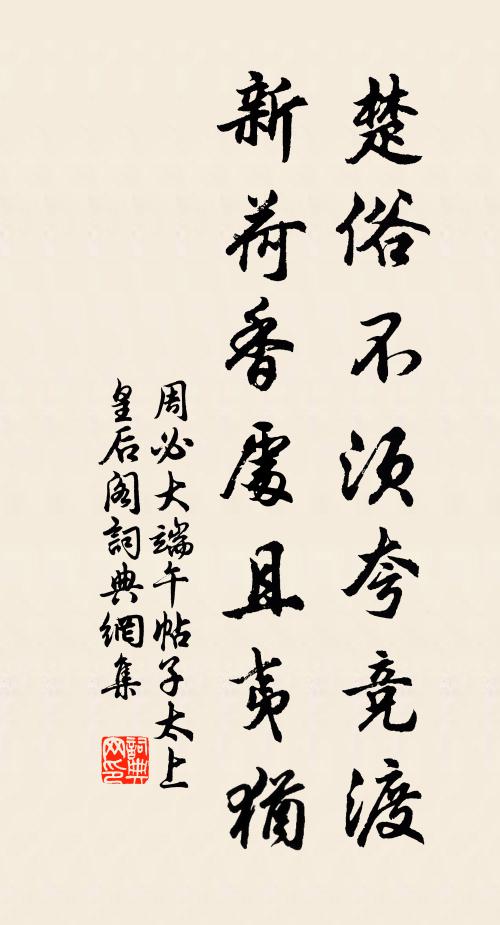 楚俗不須夸竞渡
新荷香處且夷猶
周必大端午帖子太上
皇后阁詞典網集
詞典网印